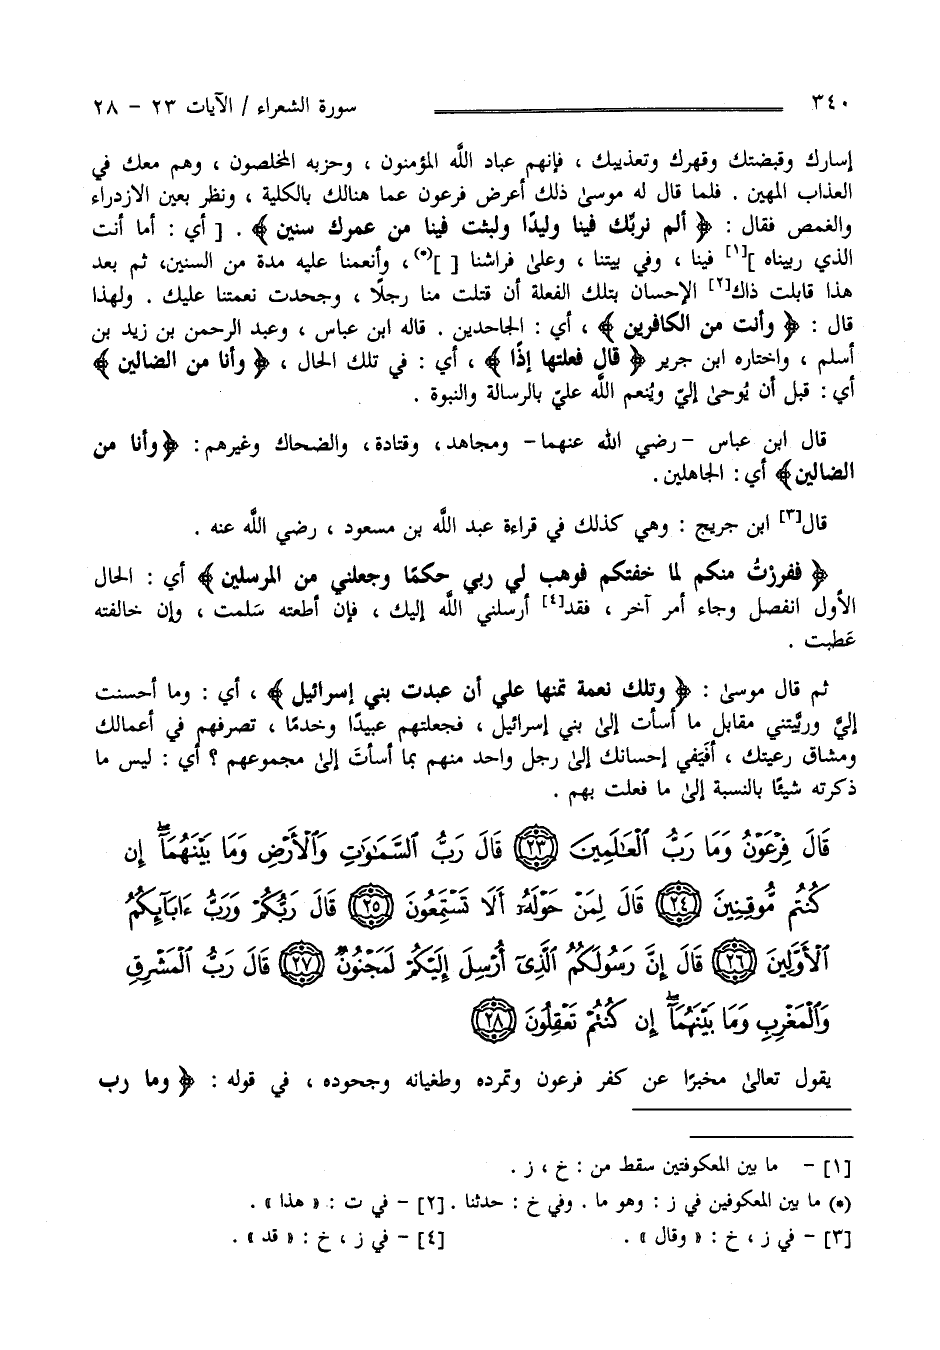 ٣٤٠ سورة الشعراء / الآيات ٢٣ - ٢٨
إسارك وقبضتك وقهرك وتعذيبك ، فإنهم عباد اللَّه المؤمنون ، وحزبه المخلصون ، وهم معك في
العذاب المهين . فلما قال له موسىٰ ذلك أعرض فرعون عما هنالك بالكلية ، ونظر بعين الازدراء
والغمص فقال : ﴿ ألم نربِّك فينا وليدًا ولبثت فينا من عمرك سنين ﴾ . [ أي : أما أنت
الذي ربيناه ][١] فينا ، وفي بيتنا ، وعلىٰ فراشنا [ ](*)، وأنعمنا عليه مدة من السنين، ثم بعد
هذا قابلت ذاك[٢] الإحسان بتلك الفعلة أن قتلت منا رجلًا ، وجحدت نعمتنا عليك . ولهذا
قال : ﴿ وأنت من الكافرين ﴾ ، أي : الجاحدين . قاله ابن عباس ، وعبد الرحمن بن زيد بن
أسلم ، واختاره ابن جرير ﴿ قال فعلتها إذًا ﴾ ، أي : في تلك الحال ، ﴿ وأنا من الضالين ﴾
أي : قبل أن يُوحىٰ إليّ ويُنعم اللَّه عليّ بالرسالة والنبوة .
قال ابن عباس -رضي الله عنهما- ومجاهد، وقتادة، والضحاك وغيرهم: ﴿وأنا من
الضالين﴾ أي: الجاهلين.
قال[٣] ابن جريج : وهي كذلك في قراءة عبد اللَّه بن مسعود ، رضي اللَّه عنه .
﴿ ففررتُ منكم لما خفتكم فوهب لي ربي حكمًا وجعلني من المرسلين ﴾ أي : الحال
الأول انفصل وجاء أمر آخر ، فقد[٤] أرسلني اللَّه إليك ، فإن أطعته سَلمت ، وإن خالفته
عَطبت .
ثم قال موسىٰ : ﴿ وتلك نعمة تمنها علي أن عبدت بني إسرائيل ﴾ ، أي : وما أحسنت
إليَّ وربَّيتني مقابل ما أسأت إلىٰ بني إسرائيل ، فجعلتهم عبيدًا وخدمًا ، تصرفهم في أعمالك
ومشاق رعيتك ، أفَيَفي إحسانك إلىٰ رجل واحد منهم بما أسأتَ إلىٰ مجموعهم ؟ أي : ليس ما
ذكرته شيئًا بالنسبة إلىٰ ما فعلت بهم .
قَالَ فِرْعَوْنُ وَمَا رَبُّ ٱلْعَـٰلَمِينَ ٢٣ قَالَ رَبُّ ٱلسَّمَـٰوَٰتِ وَٱلْأَرْضِ وَمَا بَيْنَهُمَآ ۖ إِن
كُنتُم مُّوقِنِينَ ٢٤ قَالَ لِمَنْ حَوْلَهُۥٓ أَلَا تَسْتَمِعُونَ ٢٥ قَالَ رَبُّكُمْ وَرَبُّ ءَابَآئِكُمُ
ٱلْأَوَّلِينَ ٢٦ قَالَ إِنَّ رَسُولَكُمُ ٱلَّذِىٓ أُرْسِلَ إِلَيْكُمْ لَمَجْنُونٌ ٢٧ قَالَ رَبُّ ٱلْمَشْرِقِ
وَٱلْمَغْرِبِ وَمَا بَيْنَهُمَآ ۖ إِن كُنتُمْ تَعْقِلُونَ ٢٨
يقول تعالىٰ مخبرًا عن كفر فرعون وتمرده وطغيانه وجحوده ، في قوله : ﴿ وما رب
[١] - ما بين المعكوفتين سقط من : خ ، ز .
(*) ما بين المعكوفين في ز : وهو ما . وفي خ : حدثنا . [٢] - في ت : « هذا » .
[٣] - في ز ، خ : « وقال » . [٤] - في ز ، خ : « قد » .